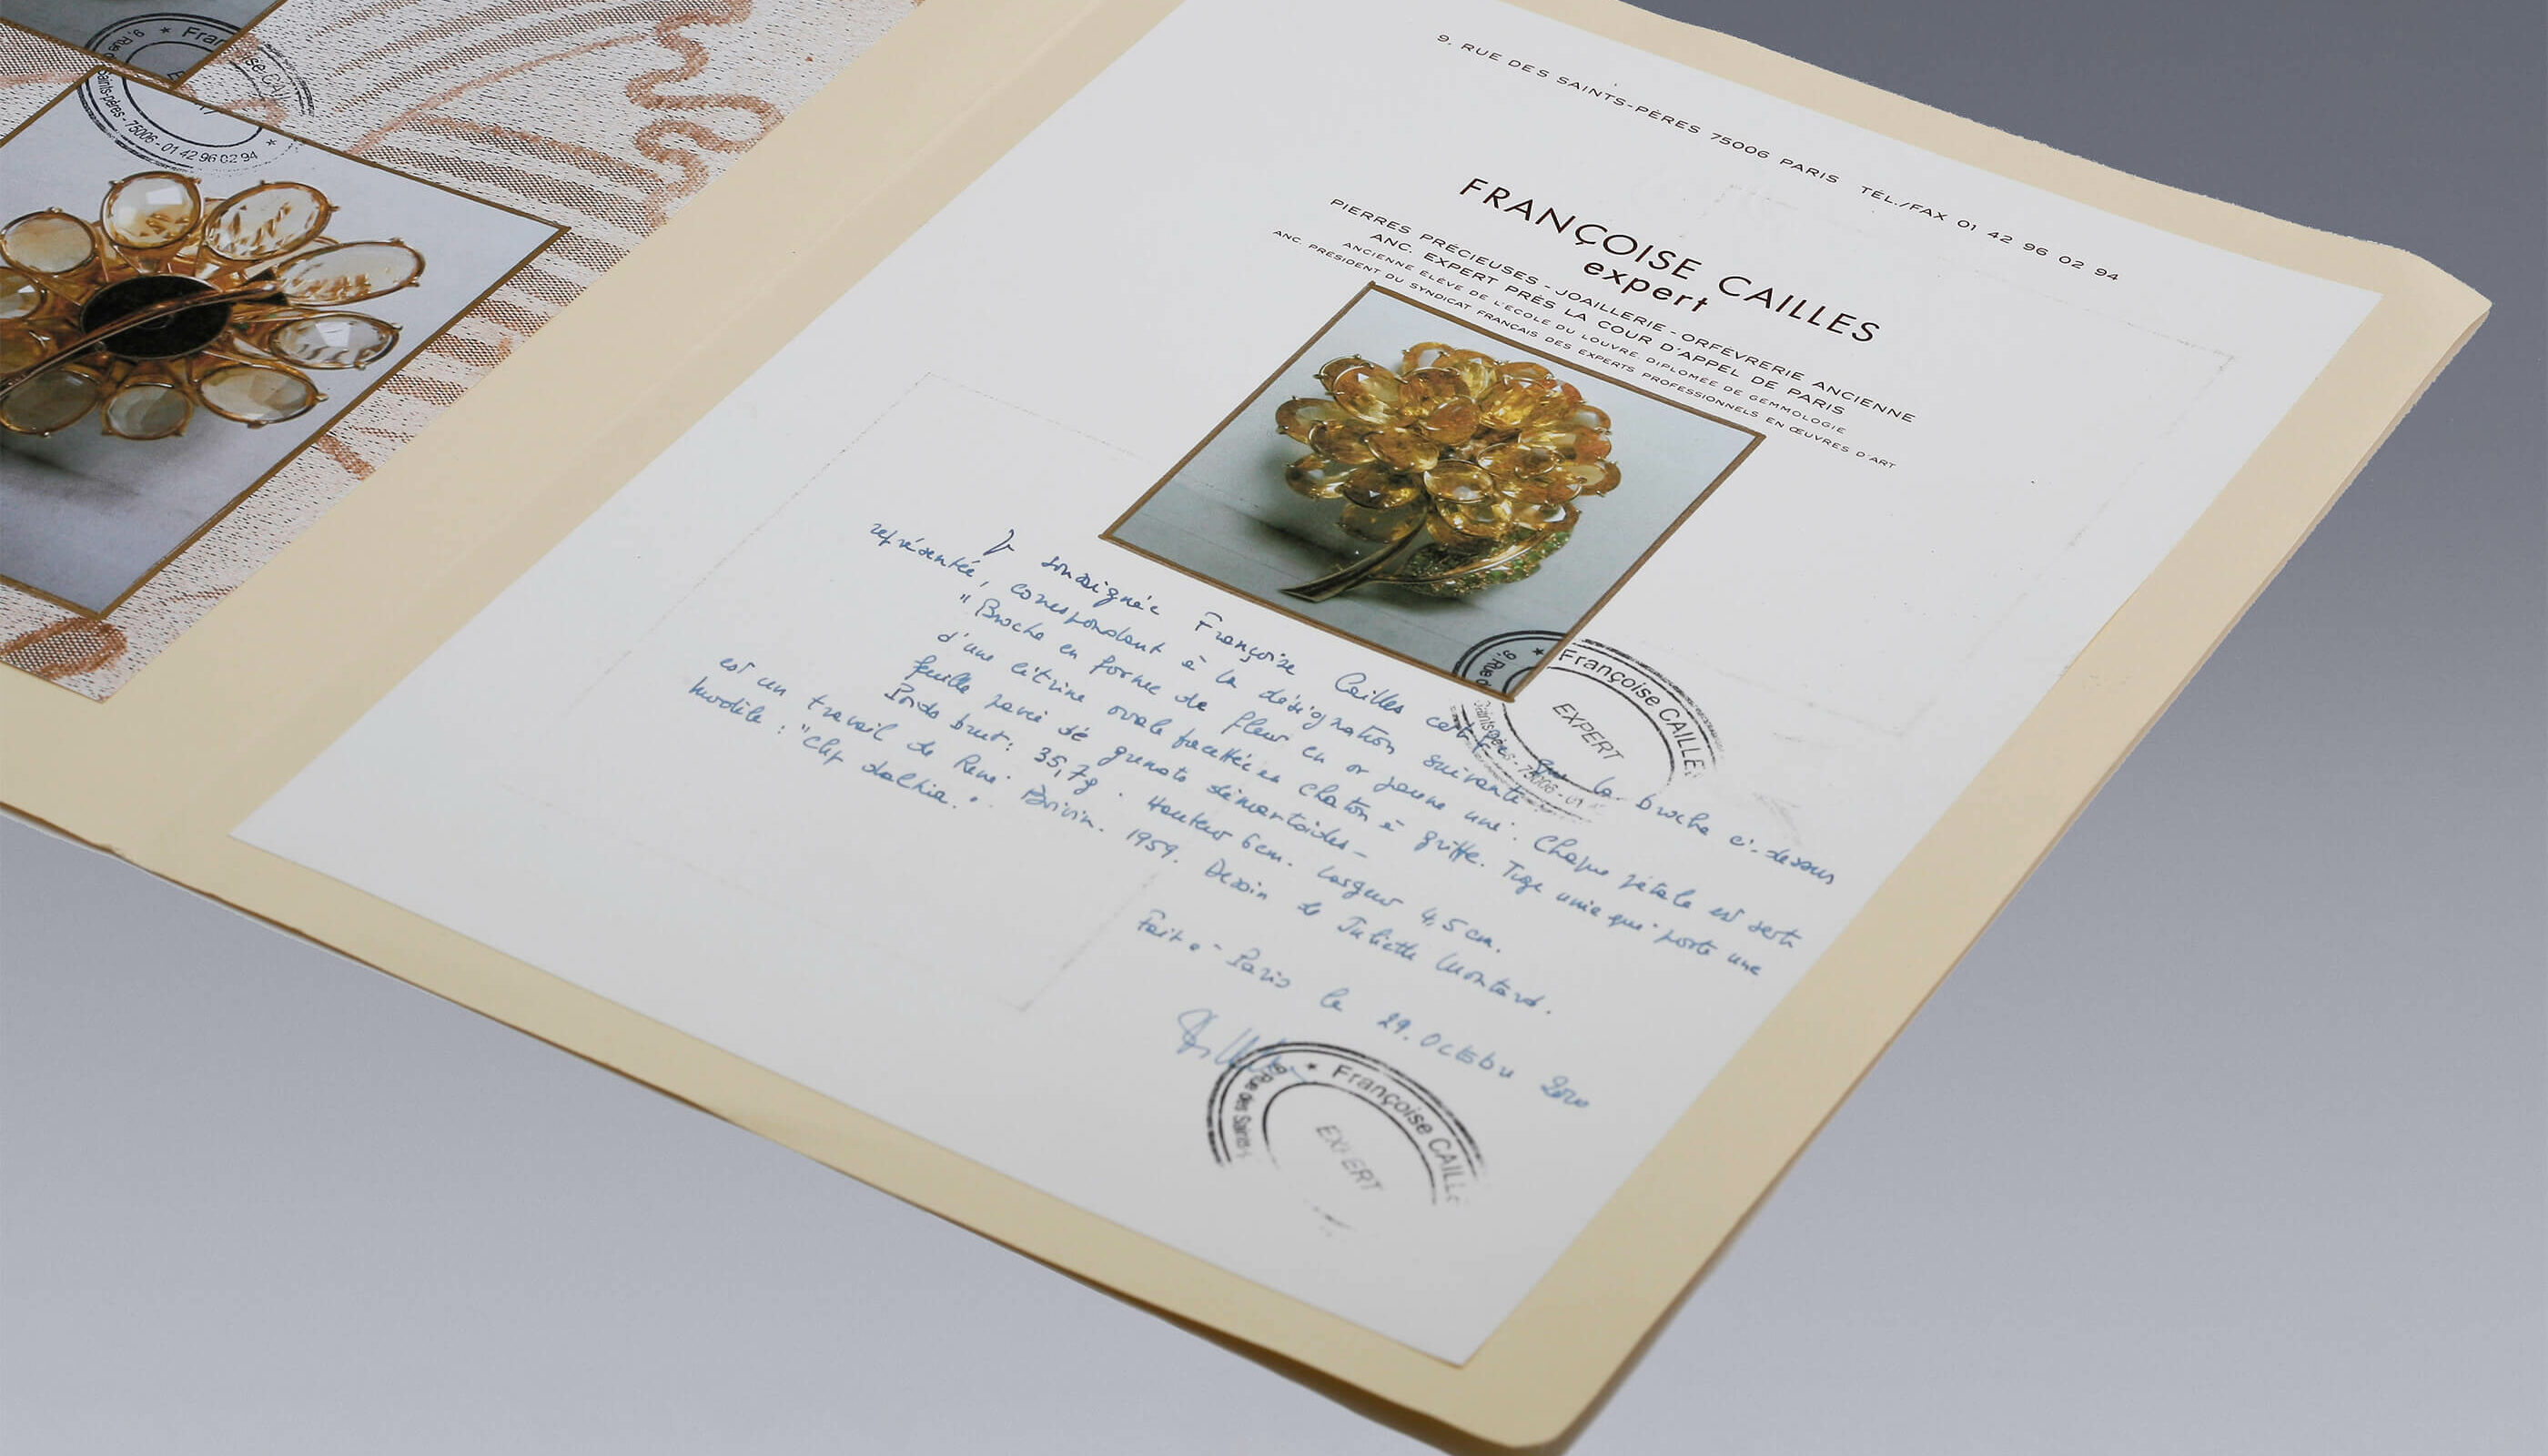 9, RUE DES SAINTS-PÈRES 75006 PARIS TÉL./FAX 01 42 96 02 94
FRANÇOISE CAILLES
expert
PIERRES PRÉCIEUSES - JOAILLERIE - ORFÈVRERIE ANCIENNE
ANC. EXPERT PRÈS LA COUR D'APPEL DE PARIS
ANCIENNE ÉLÈVE DE L'ÉCOLE DU LOUVRE. DIPLOMÉE DE GEMMOLOGIE
ANC. PRÉSIDENT DU SYNDICAT FRANÇAIS DES EXPERTS PROFESSIONNELS EN ŒUVRES D'ART
Je soussignée Françoise Cailles certifie que la broche ci-dessus
représentée, correspondant à la désignation suivante :
"Broche en forme de fleur en or jaune uni. Chaque pétale est serti
d'une citrine ovale facettée en chaton à griffe. Tige unie qui porte une
feuille pavée de grenats démantoïdes -
Poids brut : 35,7g. Hauteur 6cm. Largeur 4,5 cm.
est un travail de René Boivin. 1959. Dessin de Juliette Moutard.
modèle : "clip dalhia".
Fait à Paris le 29. Octobre 2010
Françoise CAILLES
EXPERT
Saints-pères - 75006 - 01
Françoise CAILLE
EXPERT
9, Rue des Saints
9, Rue d
Saints-pères - 75006 - 01 42 96 02 94